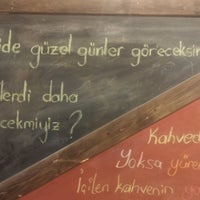 ide güzel günler göreceksin
lerdi daha
cekmiyiz ?
Kahved
Yoksa yüre
İçilen kahvenin